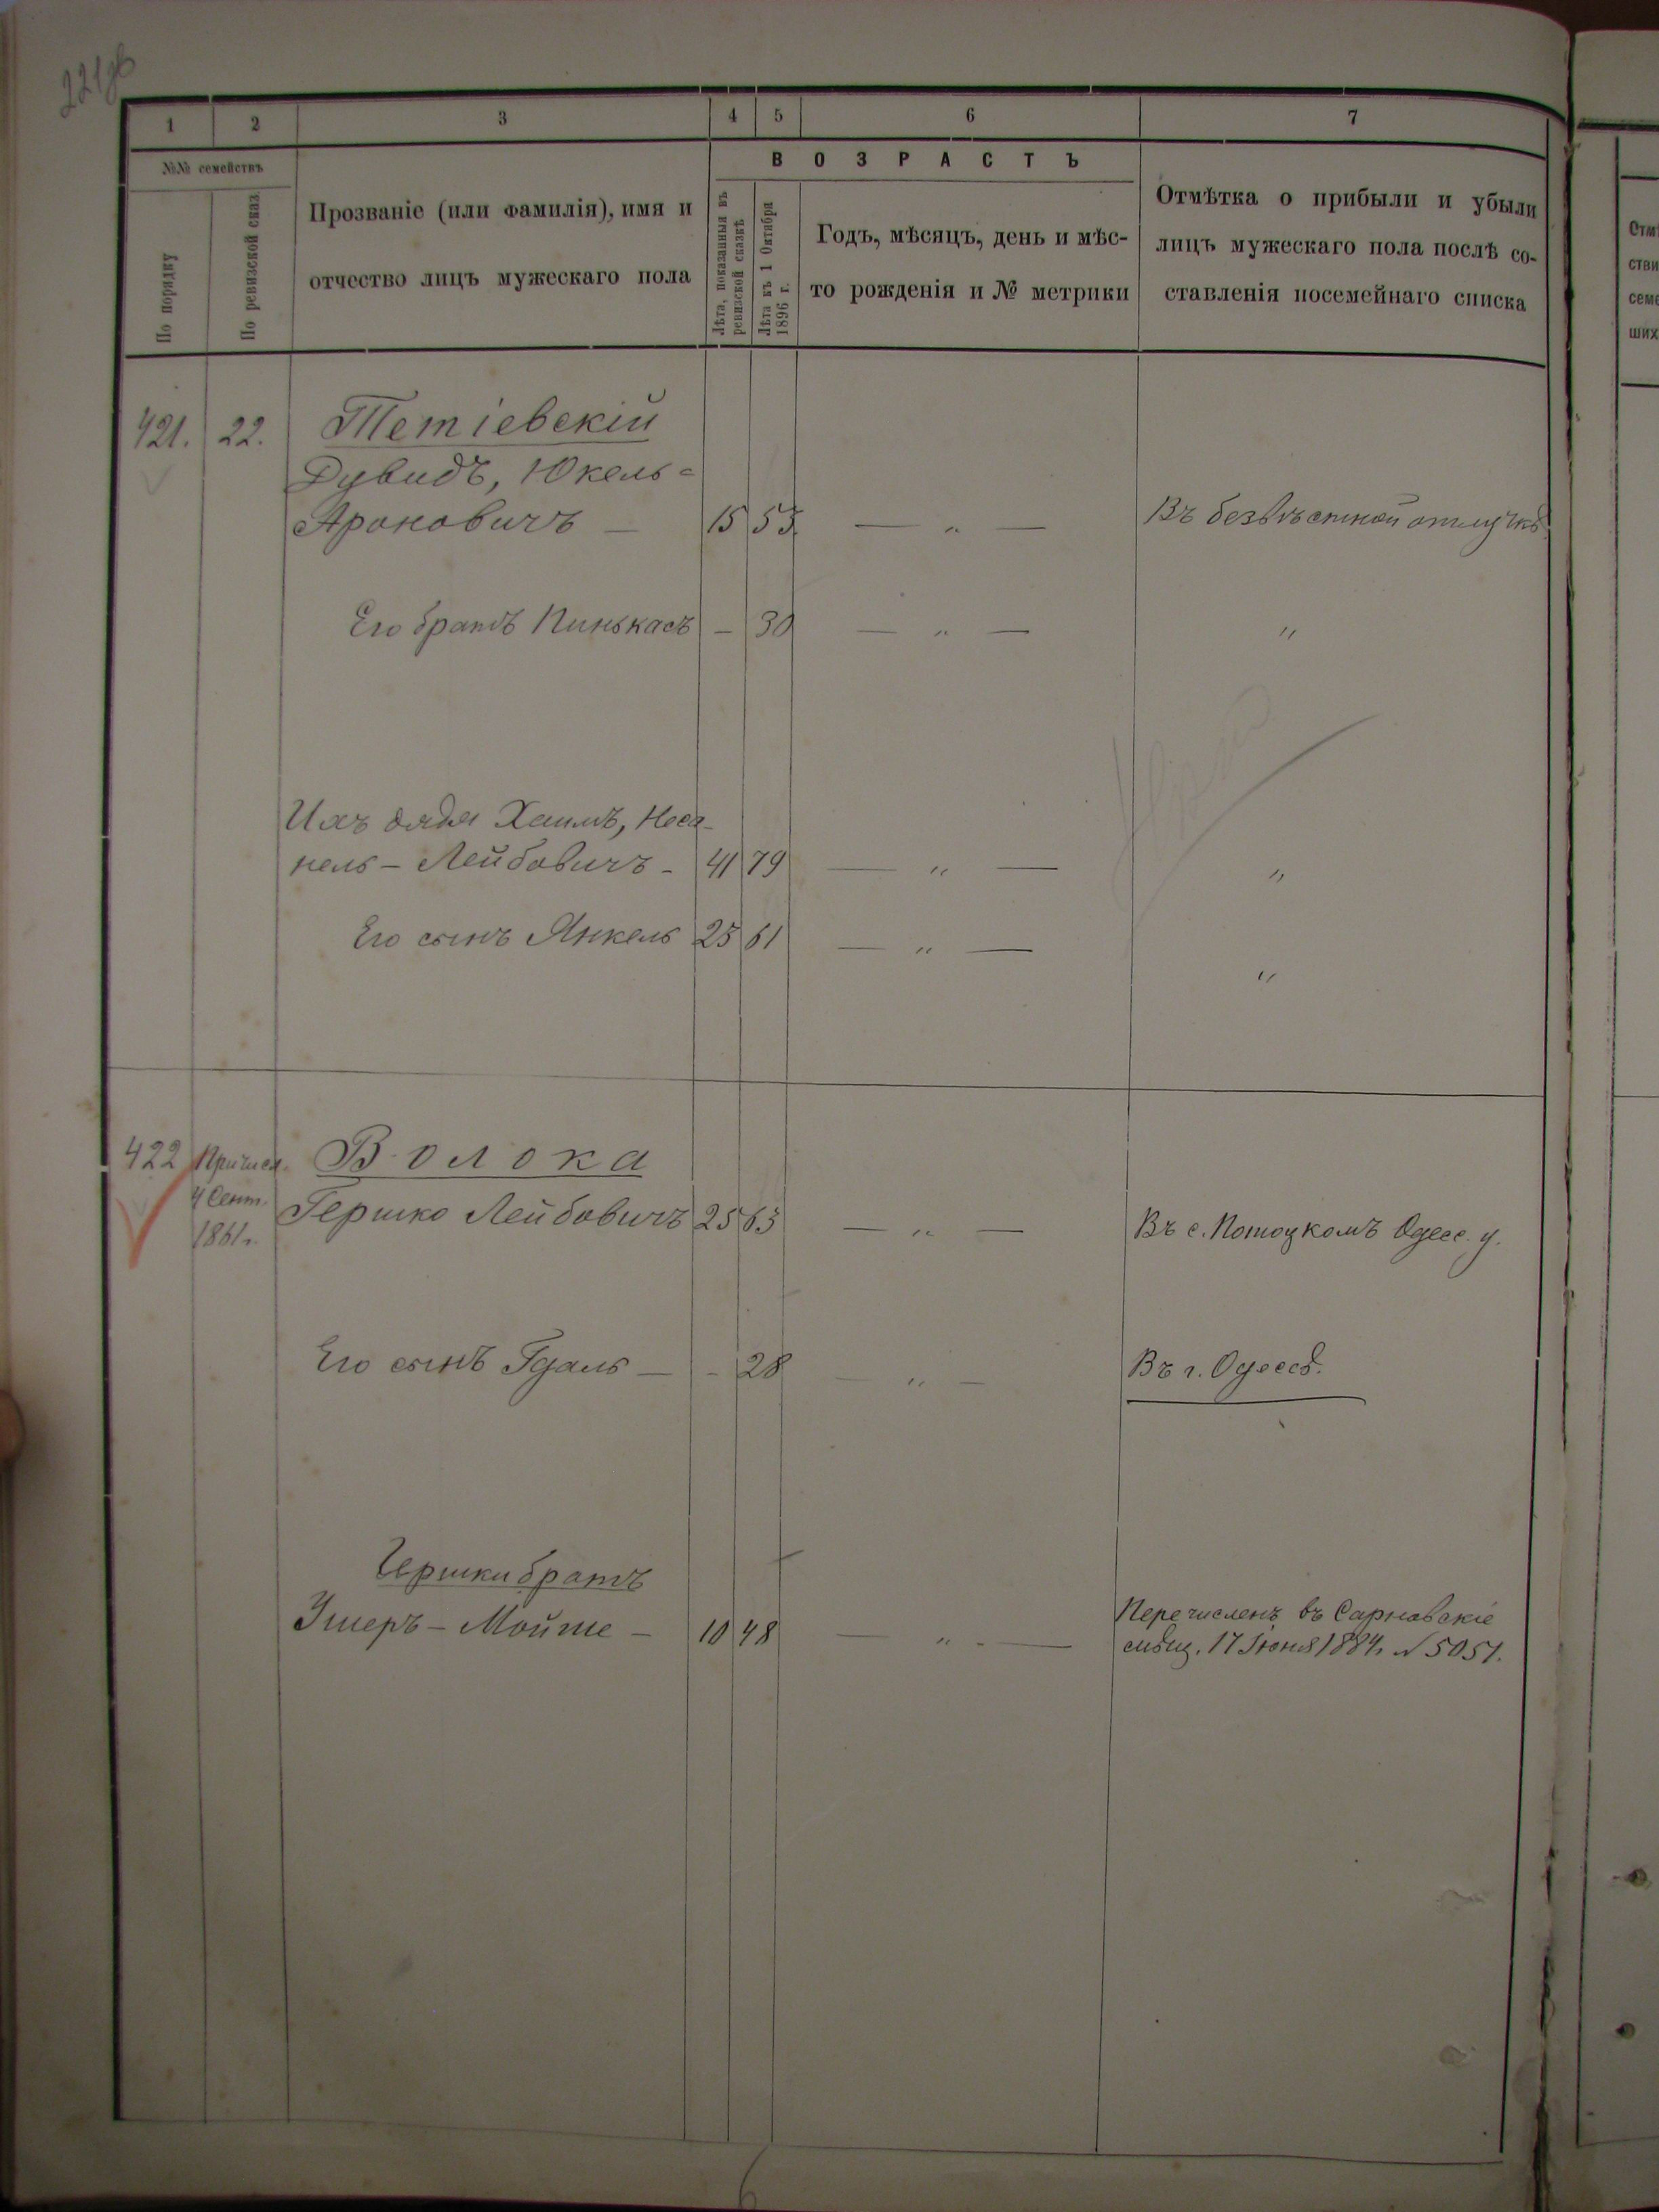 221об
1 2 3 4 5 6 7
№№ семействъ
По порядку
По ревизской сказ.
Прозваніе (или фамилія), имя и
отчество лицъ мужескаго пола
ВОЗРАСТЪ
Лѣта, показанныя въ
ревизской сказкѣ
Лѣта къ 1 Октября
1896 г.
Годъ, мѣсяцъ, день и мѣс-
то рожденія и № метрики
Отмѣтка о прибыли и убыли
лицъ мужескаго пола послѣ со-
ставленія посемейнаго списка
421. 22. Тетіевскій
Дувидъ, Юкель=
Ароновичъ — 15 53 — „ — Въ безвѣстной отлучкѣ
Его братъ Пинькасъ — 30 — „ — „
Ихъ дядя Хаимъ, Неса-
нель – Лейбовичъ - 41 79 — „ — „
Его сынъ Янкель 23 61 — „ — „
422 Причисл. Волока
4 Сент.
1861 г.
Гершко Лейбовичъ 25 63 — „ — Въ с. Потоцкомъ Одесс. у.
Его сынъ Гдаль — - 28 — „ — Въ г. Одессѣ.
Гершки братъ
Ушеръ – Мойше – 10 48 — „ — Перечисленъ въ Сарновскіе
мѣщ. 17 Іюня 1884 г. № 5051.
Отм
стви
семе
ших